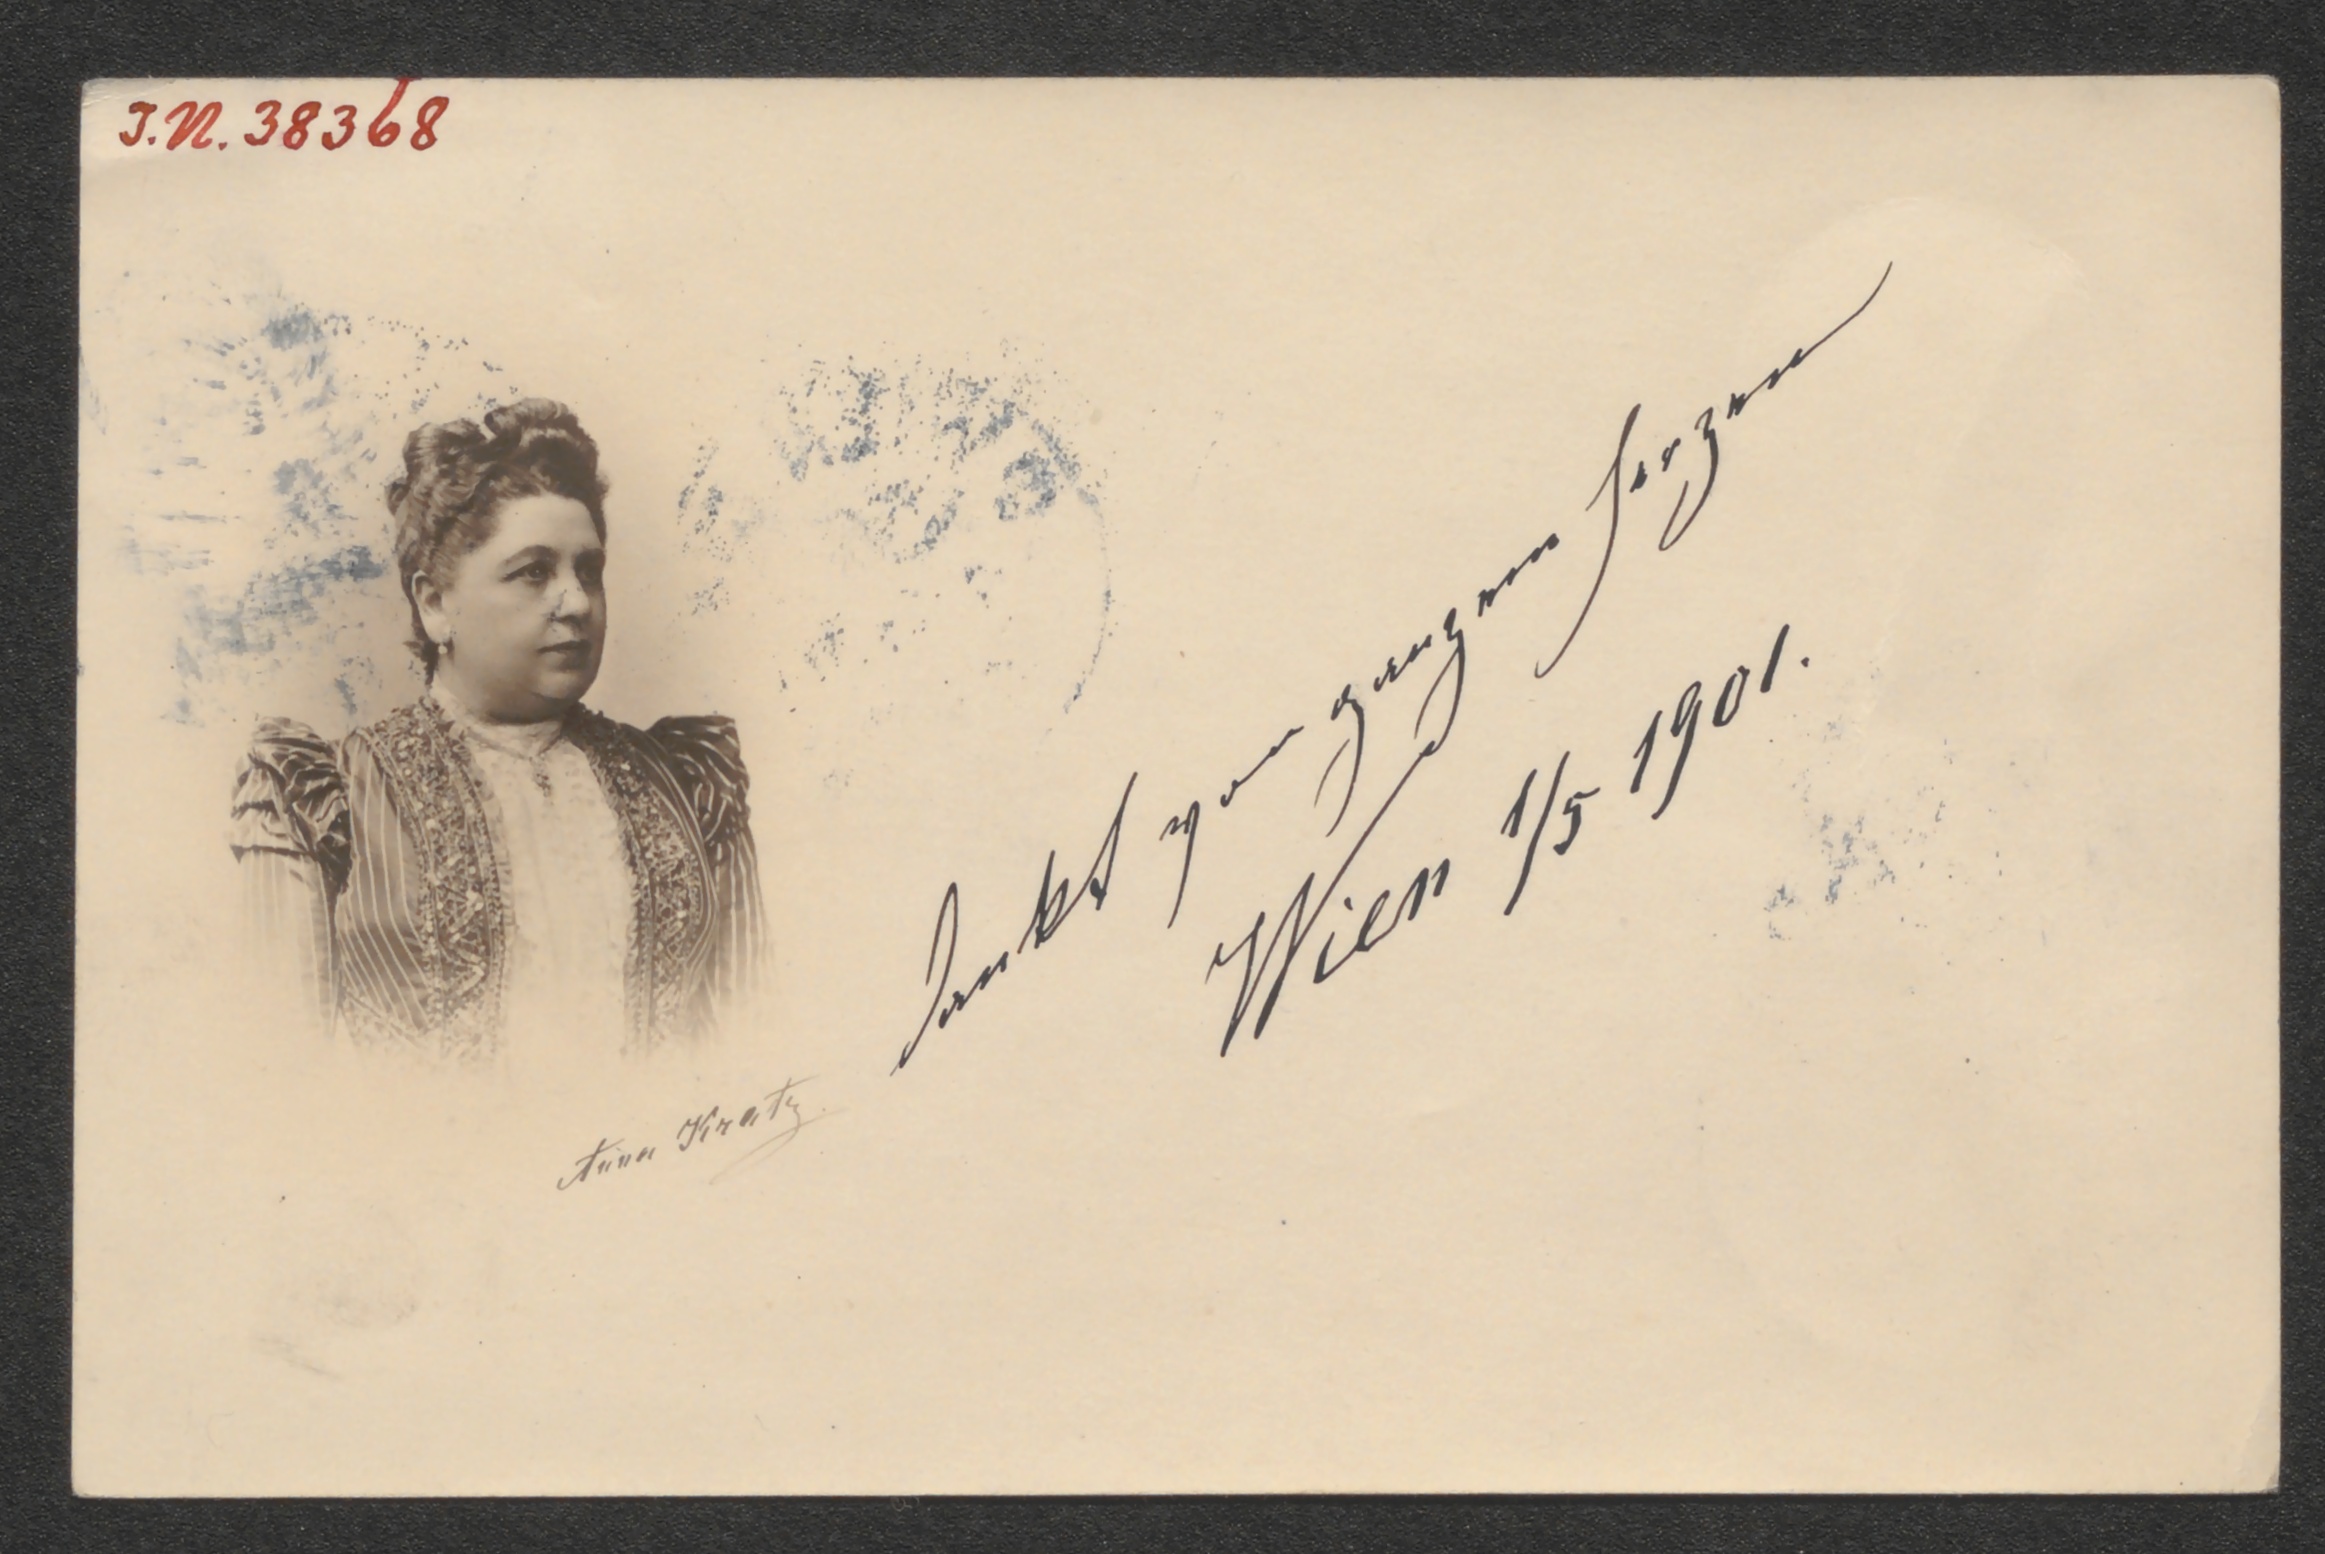 I.N. 38368
Anna Kratz
dankt von ganzem Herzen
Wien 1/5 1901.